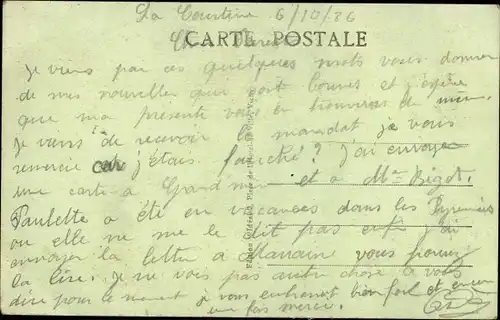 La Courtine 6/10/26
CARTE POSTALE
Je viens par ces quelques mots vous donner
de mes nouvelles qui sont bonnes et j'espère
que ma présente vous en trouvera de même.
Je viens de recevoir le mandat je vous
remercie car j'étais fauché? J'ai envoyé
une carte à Grand'mère et a Mme Bégot.
Paulette a été en vacances dans les Pyrénées
ou elle ne me le dit pas enfin j'ai
envoyer la lettre a Maman vous pouvez
la lire. Je ne vois pas autre chose a vous
dire pour le moment je vous embrassant bien fort et encore
un fois merci.